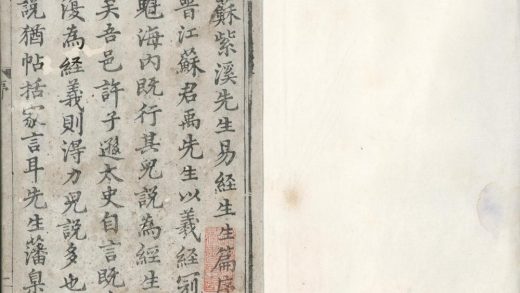 蘇紫溪先生易經生生篇序
晉江蘇君禹先生以羲經冠
魁海内既行其兒說為經生
矣吾邑許子遜太史自言既
為經義則得力兒說多也
說猶帖括家言耳先生藩臬
序